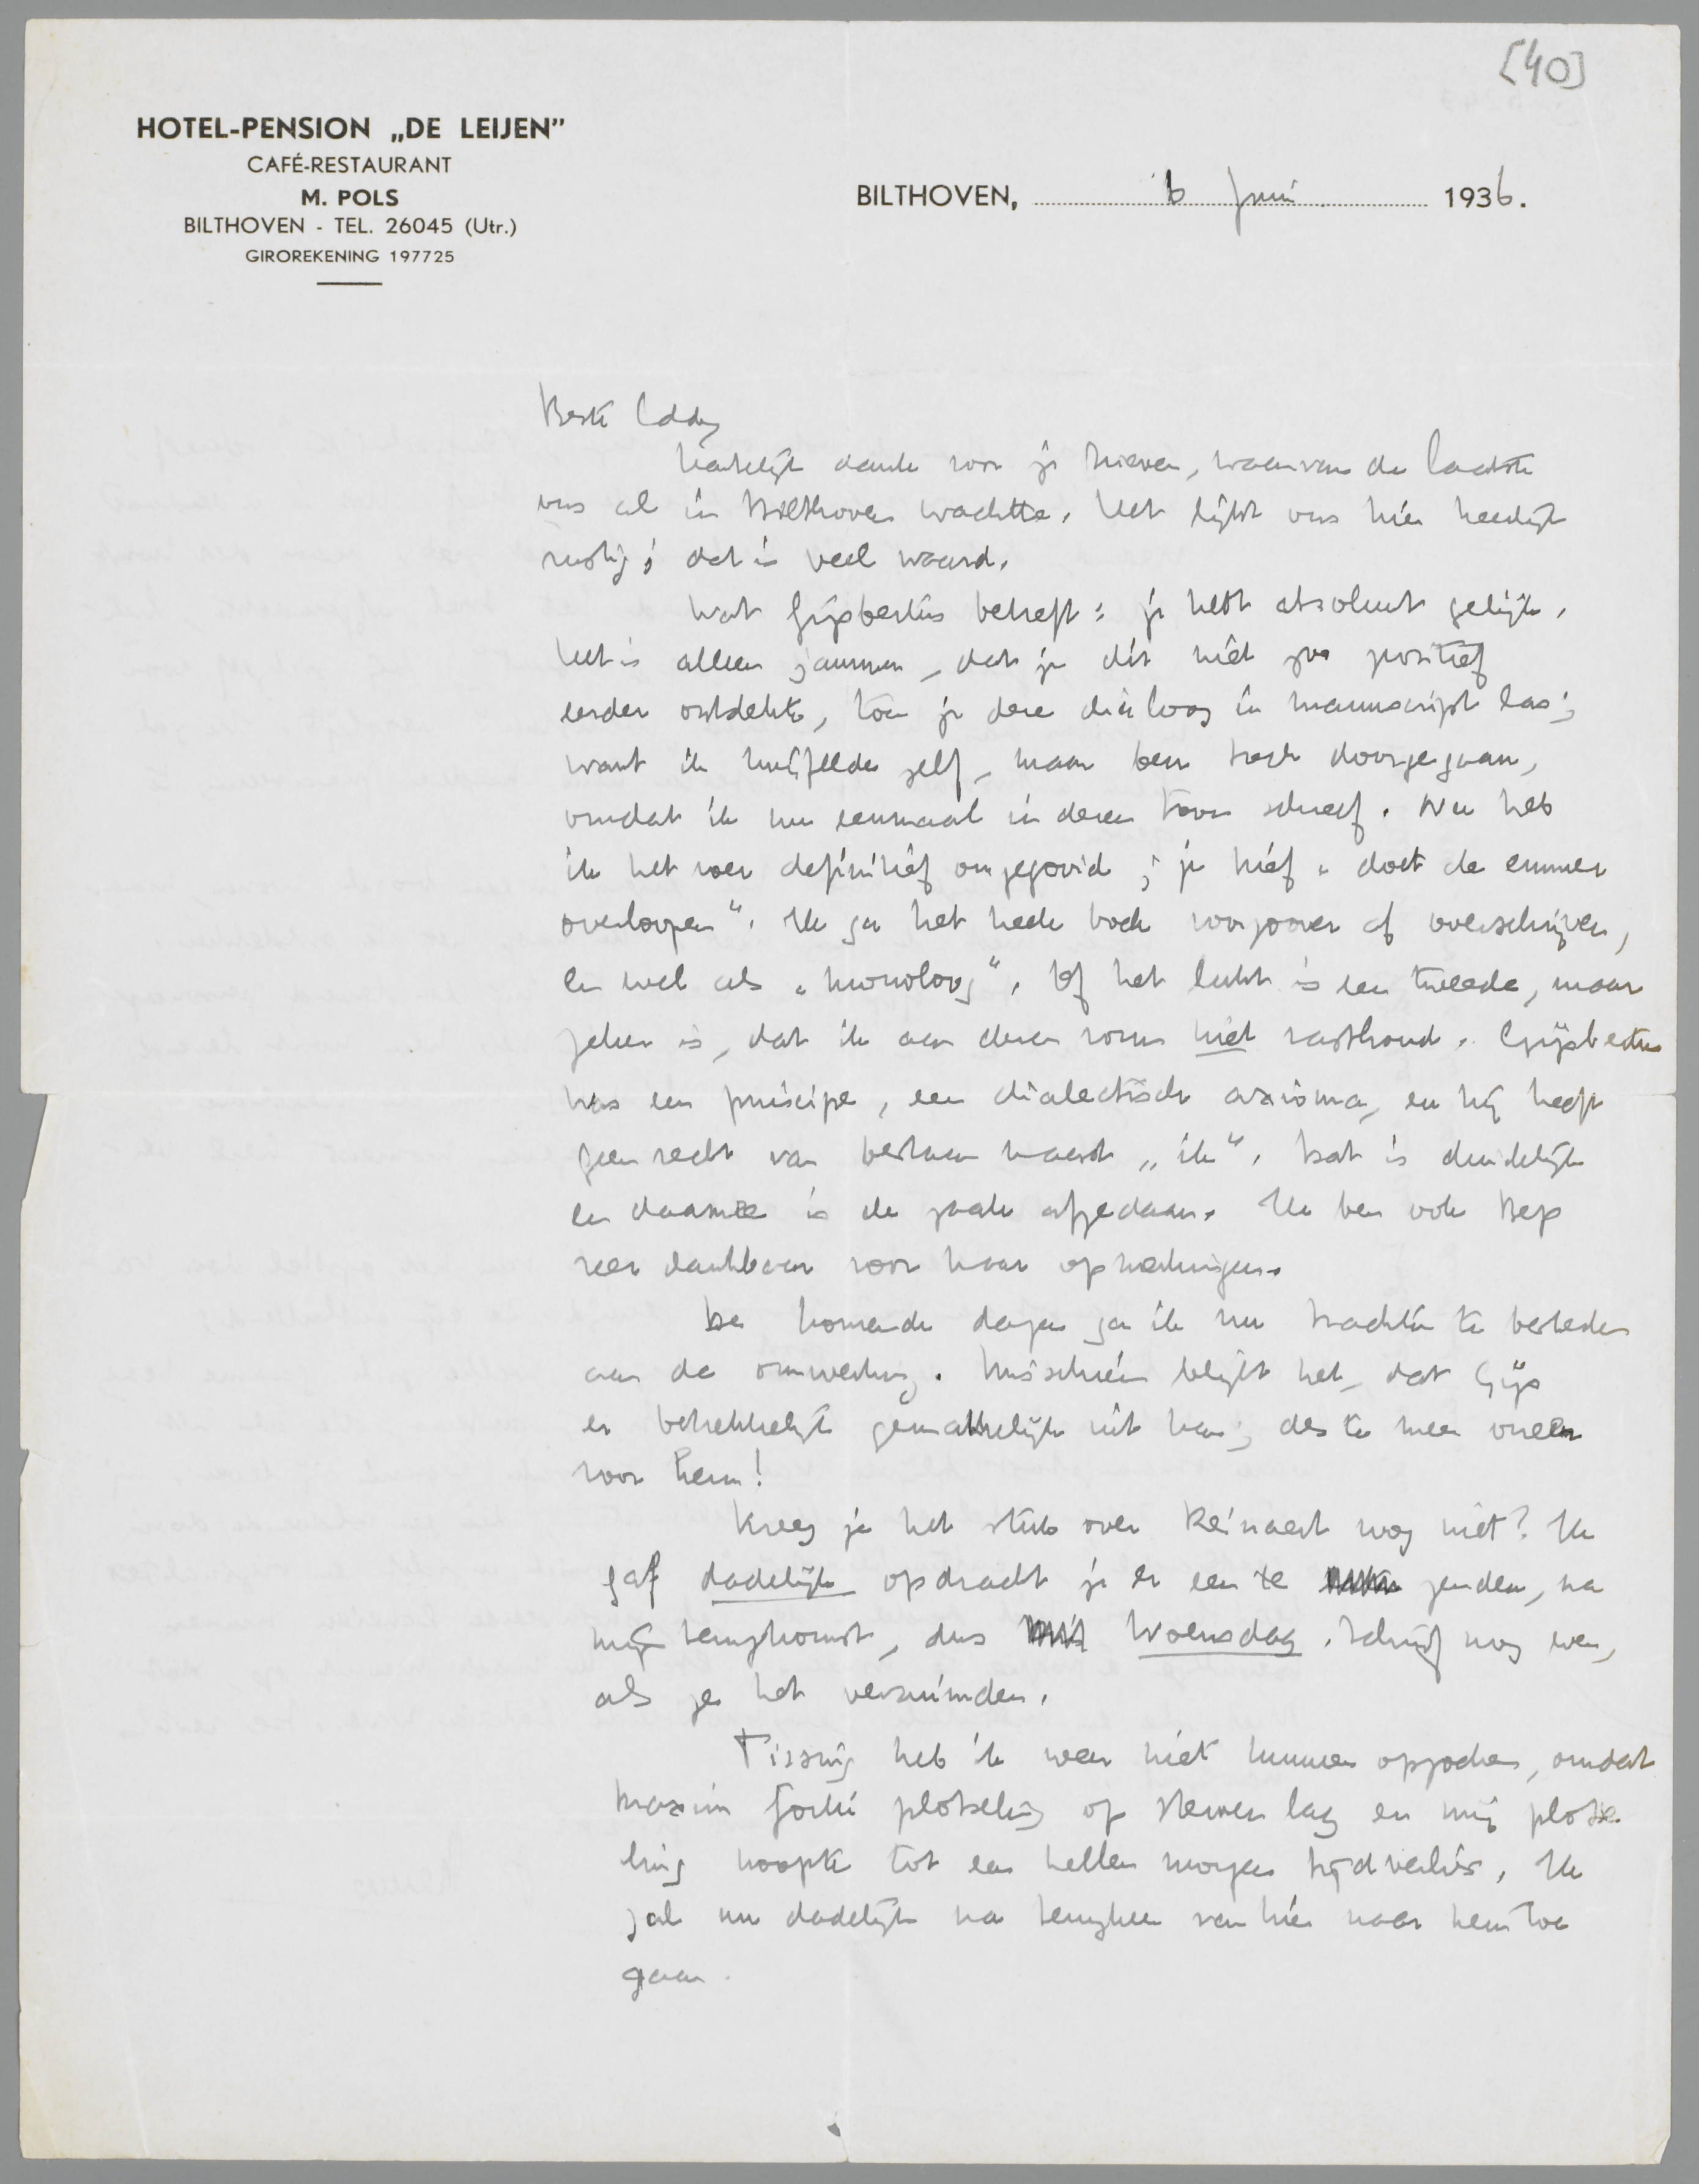 [40]
HOTEL-PENSION „DE LEIJEN”
CAFÉ-RESTAURANT
M. POLS
BILTHOVEN - TEL. 26045 (Utr.)
GIROREKENING 197725
BILTHOVEN, 6 Juni 1936.
Beste Eddy
Hartelijk dank voor je brieven, waarvan de laatste
ons al in Bilthoven wachtte. Het lijkt ons hier heerlijk
rustig; dat is veel waard.
Wat Gijsbertus betreft: je hebt absoluut gelijk.
Het is alleen jammer, dat je dit niet zoo positief
eerder ontdekte, toen je deze dialoog in manuscript las;
want ik twijfelde zelf, maar ben toch doorgegaan,
omdat ik nu eenmaal in dezen toon schreef. Nu heb
ik het roer definitief omgegooid; je brief „doet de emmer
overloopen“. Ik ga het heele boek voorzoover af overschrijven,
en wel als „monoloog“. Of het lukt is een tweede, maar
zeker is, dat ik aan dezen vorm niet vasthoud. Gijsbertus
was een principe, een dialectisch axioma, en hij heeft
geen recht van bestaan naast „ik“. Dat is duidelijk
en daarmee is de zaak afgedaan. Ik ben ook Bep
zeer dankbaar voor haar opmerkingen.
De komende dagen ga ik nu trachten te besteden
aan de omwerking. Misschien blijkt het, dat Gijs
er betrekkelijk gemakkelijk uit kan; des te meer oneer
voor hem!
Kreeg je het stuk over Reinaert nog niet? Ik
gaf dadelijk opdracht je er een te zenden, na
mijn terugkomst, dus Woensdag. Schrijf nog even,
als ze het verzuimden.
Tissing heb ik weer niet kunnen opzoeken, omdat
Maxim Gorki plotseling op sterven lag en mij plotse
ling noopte tot een heelen morgen tijdverlies. Ik
zal nu dadelijk na terugkeer van hier naar hem toe
gaan.